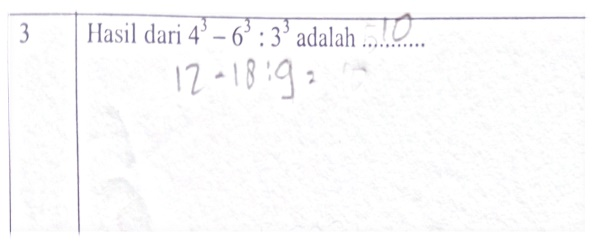 3 Hasil dari 4³ – 6³ : 3³ adalah ............ 10
12 - 18 : 9 =